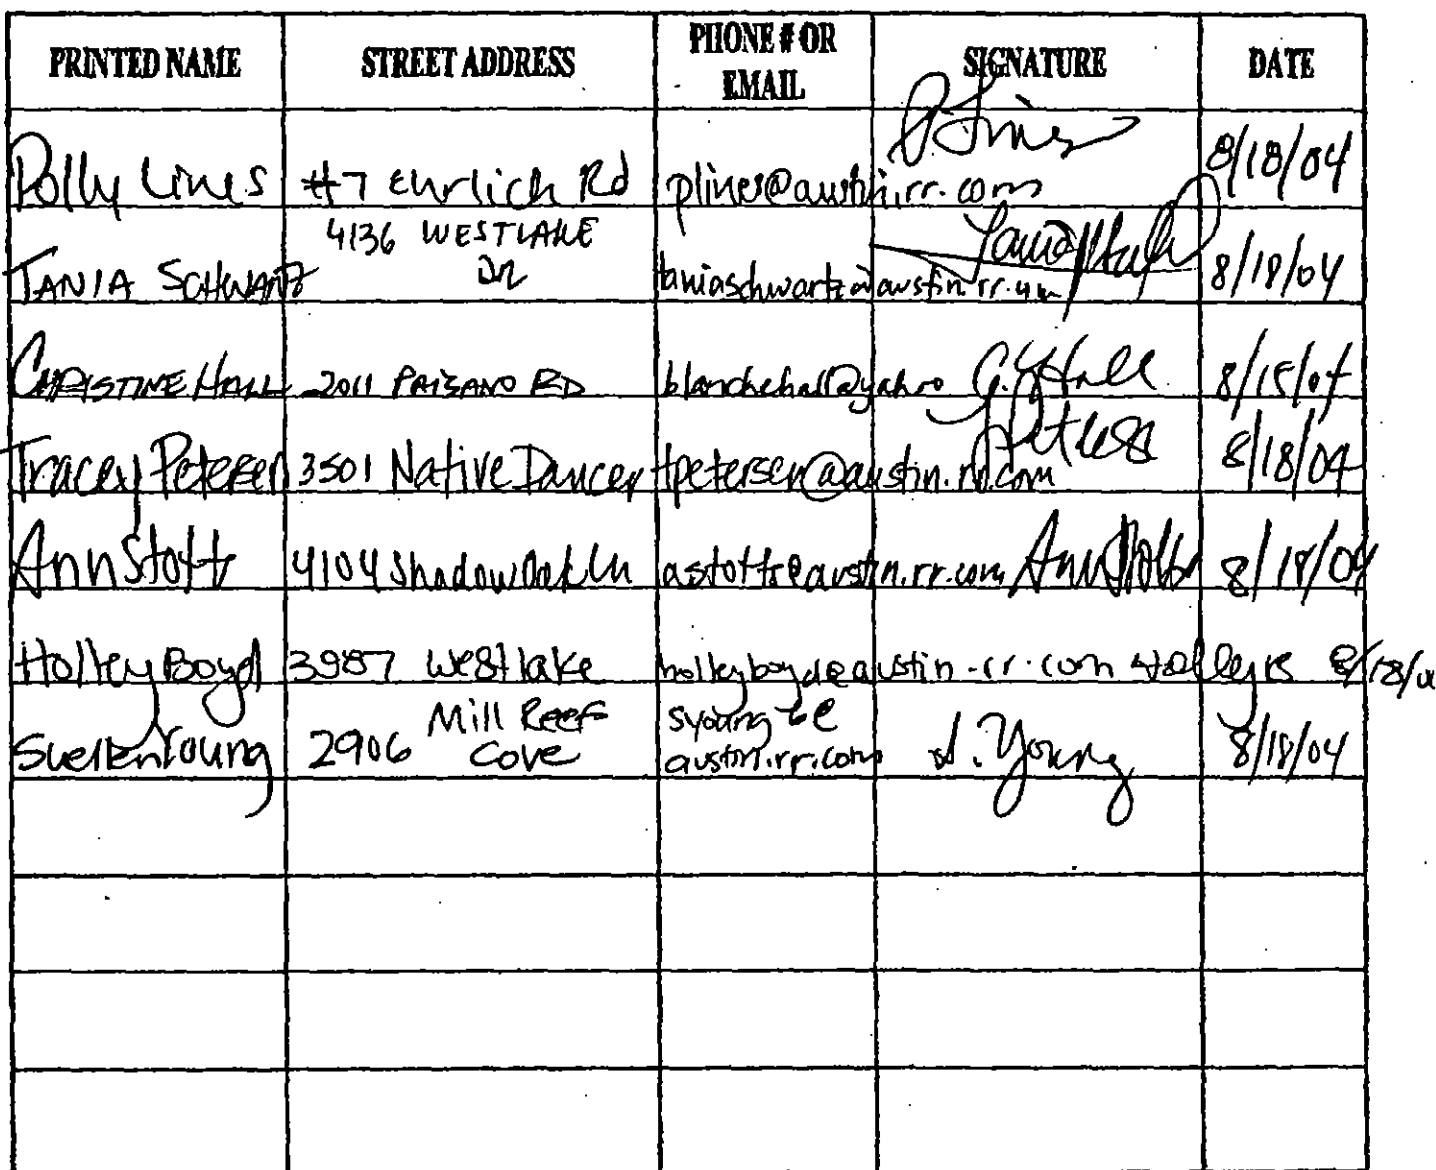 PRINTED NAME STREET ADDRESS PHONE # OR EMAIL SIGNATURE DATE
Polly Lines #7 Ehrlich Rd plines@austin.rr.com PLines 8/18/04
TANIA SCHWARTZ 4136 WESTLAKE Dr taniaschwartz@austin.rr.com 8/18/04
CHRISTINE HALL 2011 PAISANO RD blanchehall@yahoo C. Hall
Tracey Petersen 3501 Native Dancer tpetersen@austin.rr.com 8/18/04
Ann Stott 4104 Shadow Oak Ln astotts@austin.rr.com 8/18/04
Holley Boyd 3987 westlake holleyboyd@austin.rr.com
Suellen Young 2906 Mill Reef Cove austin.rr.com S. Young 8/18/04